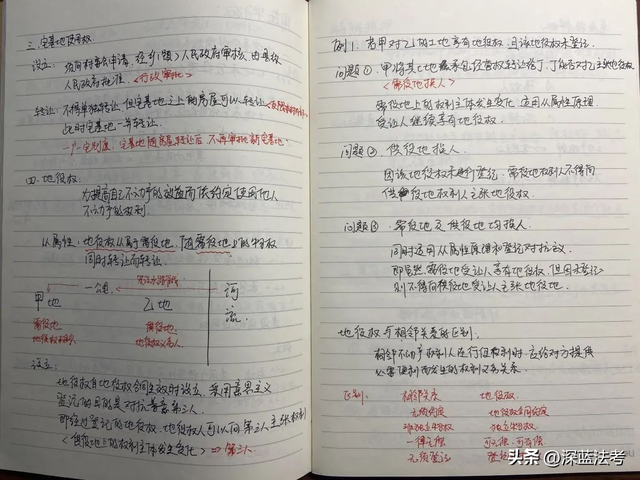 三.宅基地使用权
设立: 须向村委会申请,经乡(镇)人民政府审核,由县级
人民政府批准.<行政审批>
转让: 不得单独转让,但宅基地之上的房屋可以转让
此时宅基地一并转让.
一户一宅制度,宅基地随房屋转让后,不再审批新宅基地.
四.地役权.
为提高自己不动产的效益而依约定使用他人
不动产的权利.
从属性: 地役权从属于需役地,随需役地上的物权
同时转让而转让.
一公里
河
流.
甲地 乙地
需役地 供役地
地役权人 地役权义务人
设立:
地役权自地役权合同生效时设立,采用意思主义
登记的目的是对抗善意第三人.
即经过登记的地役权,地役权人可以向第三人主张权利
<供役地上的权利主体发生变化> ⇒ 第三人.
例1. 若甲对乙的土地享有地役权,且该地役权未登记.
问题① 甲将其土地承包经营权转让给丁,丁能否对乙主张地役权
<需役地换人>
需役地上的权利主体发生变化,适用从属性原理.
受让人继续享有地役权.
问题② 供役地换人.
因该地役权未进行登记,需役地权利人不得向
供役地权利人主张地役权.
问题③ 需役地及供役地均换人.
同时适用从属性原理和登记对抗主义.
即虽然需役地受让人享有地役权,但因未登记
则不得向供役地受让人主张地役地.
地役权与相邻关系的区别.
相邻不动产权利人在行使权利时,应给对方提供
必要便利而发生的权利义务关系.
区别: 相邻关系 地役权.
无须约定 地役权合同约定
非独立物权 独立物权.
一律无偿 可无偿、可有偿
无须登记
头条 @深蓝法考